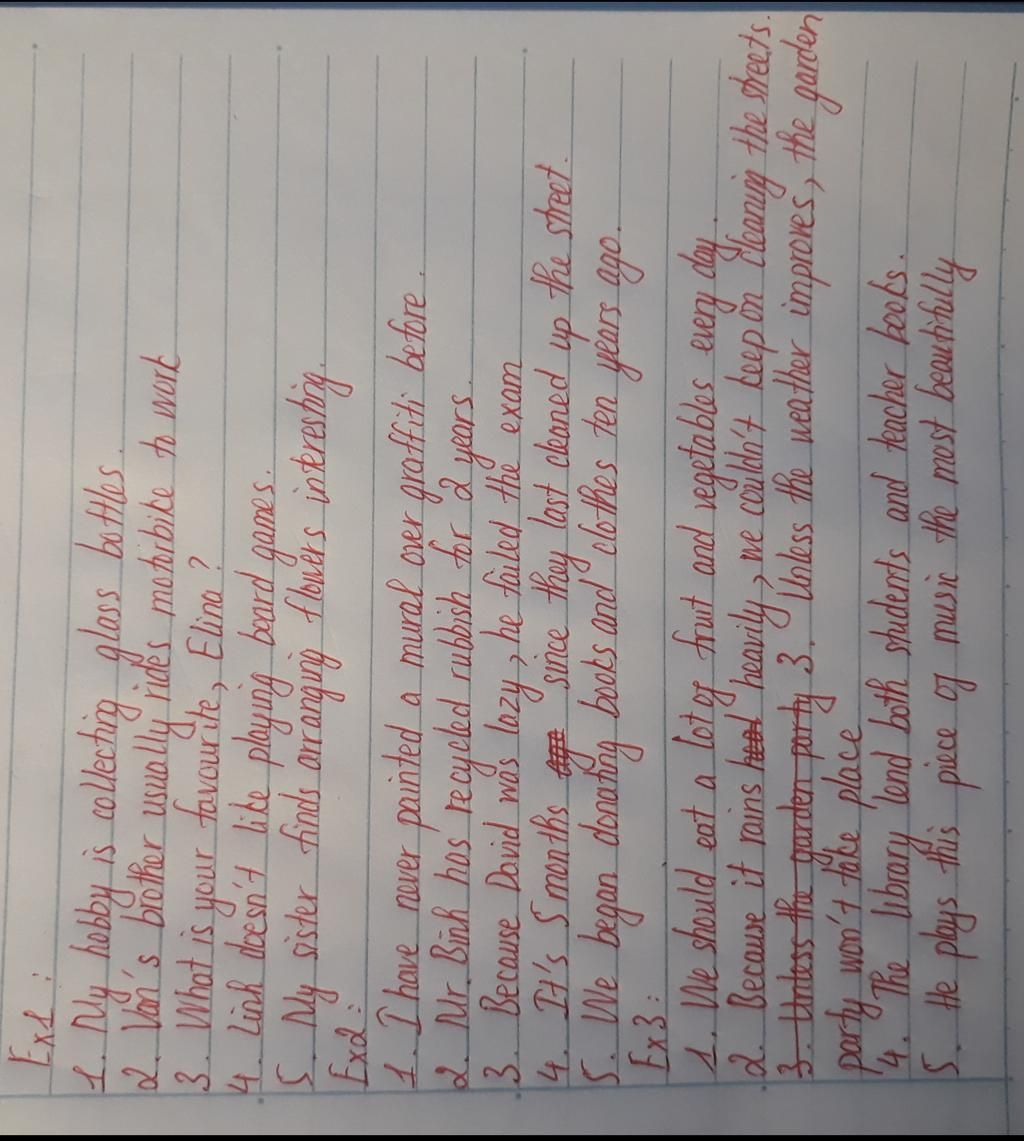 Ex1:
1. My hobby is collecting glass bottles.
2. Van's brother usually rides motorbike to work
3. What is your favourite, Elina?
4. Linh doesn't like playing board games.
5. My sister finds arranging flowers interesting.
Ex2:
1. I have never painted a mural over graffiti before.
2. Mr. Binh has recycled rubbish for 2 years.
3. Because David was lazy, he failed the exam
4. It's 5 months since they last cleaned up the street.
5. We began donating books and clothes ten years ago.
Ex3:
1. We should eat a lot of fruit and vegetables every day.
2. Because it rains heavily, we couldn't keep on cleaning the streets.
3. Unless the garden party 3. Unless the weather improves, the garden
party won't take place
4. The library lend both students and teacher books.
5. He plays this piece of music the most beautifully